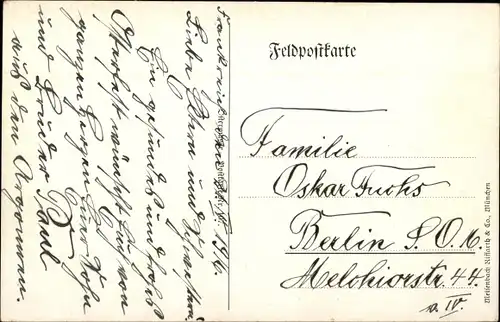 Frankreich,
Liebe Eltern und Geschw.
Ein gesundes und frohes
Osterfest wünscht Euch von
ganzem Herzen Euer Sohn
und Bruder Paul
aus den Argonnen.
Feldpostkarte
Familie
Oskar Fuchs
Berlin S. O. 16.
Melchiorstr. 44.
v. IV.
Meisenbach Riffarth & Co., München